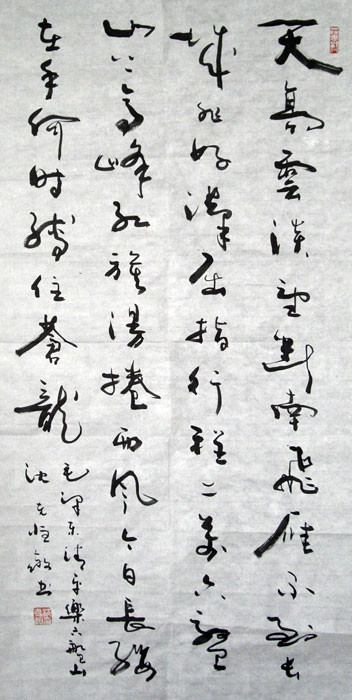 天高雲淡望斷南飛雁不到長
城非好漢屈指行程二萬六盤
山上高峰紅旗漫捲西風今日長纓
在手何時縛住蒼龍
毛澤東清平樂六盤山
書